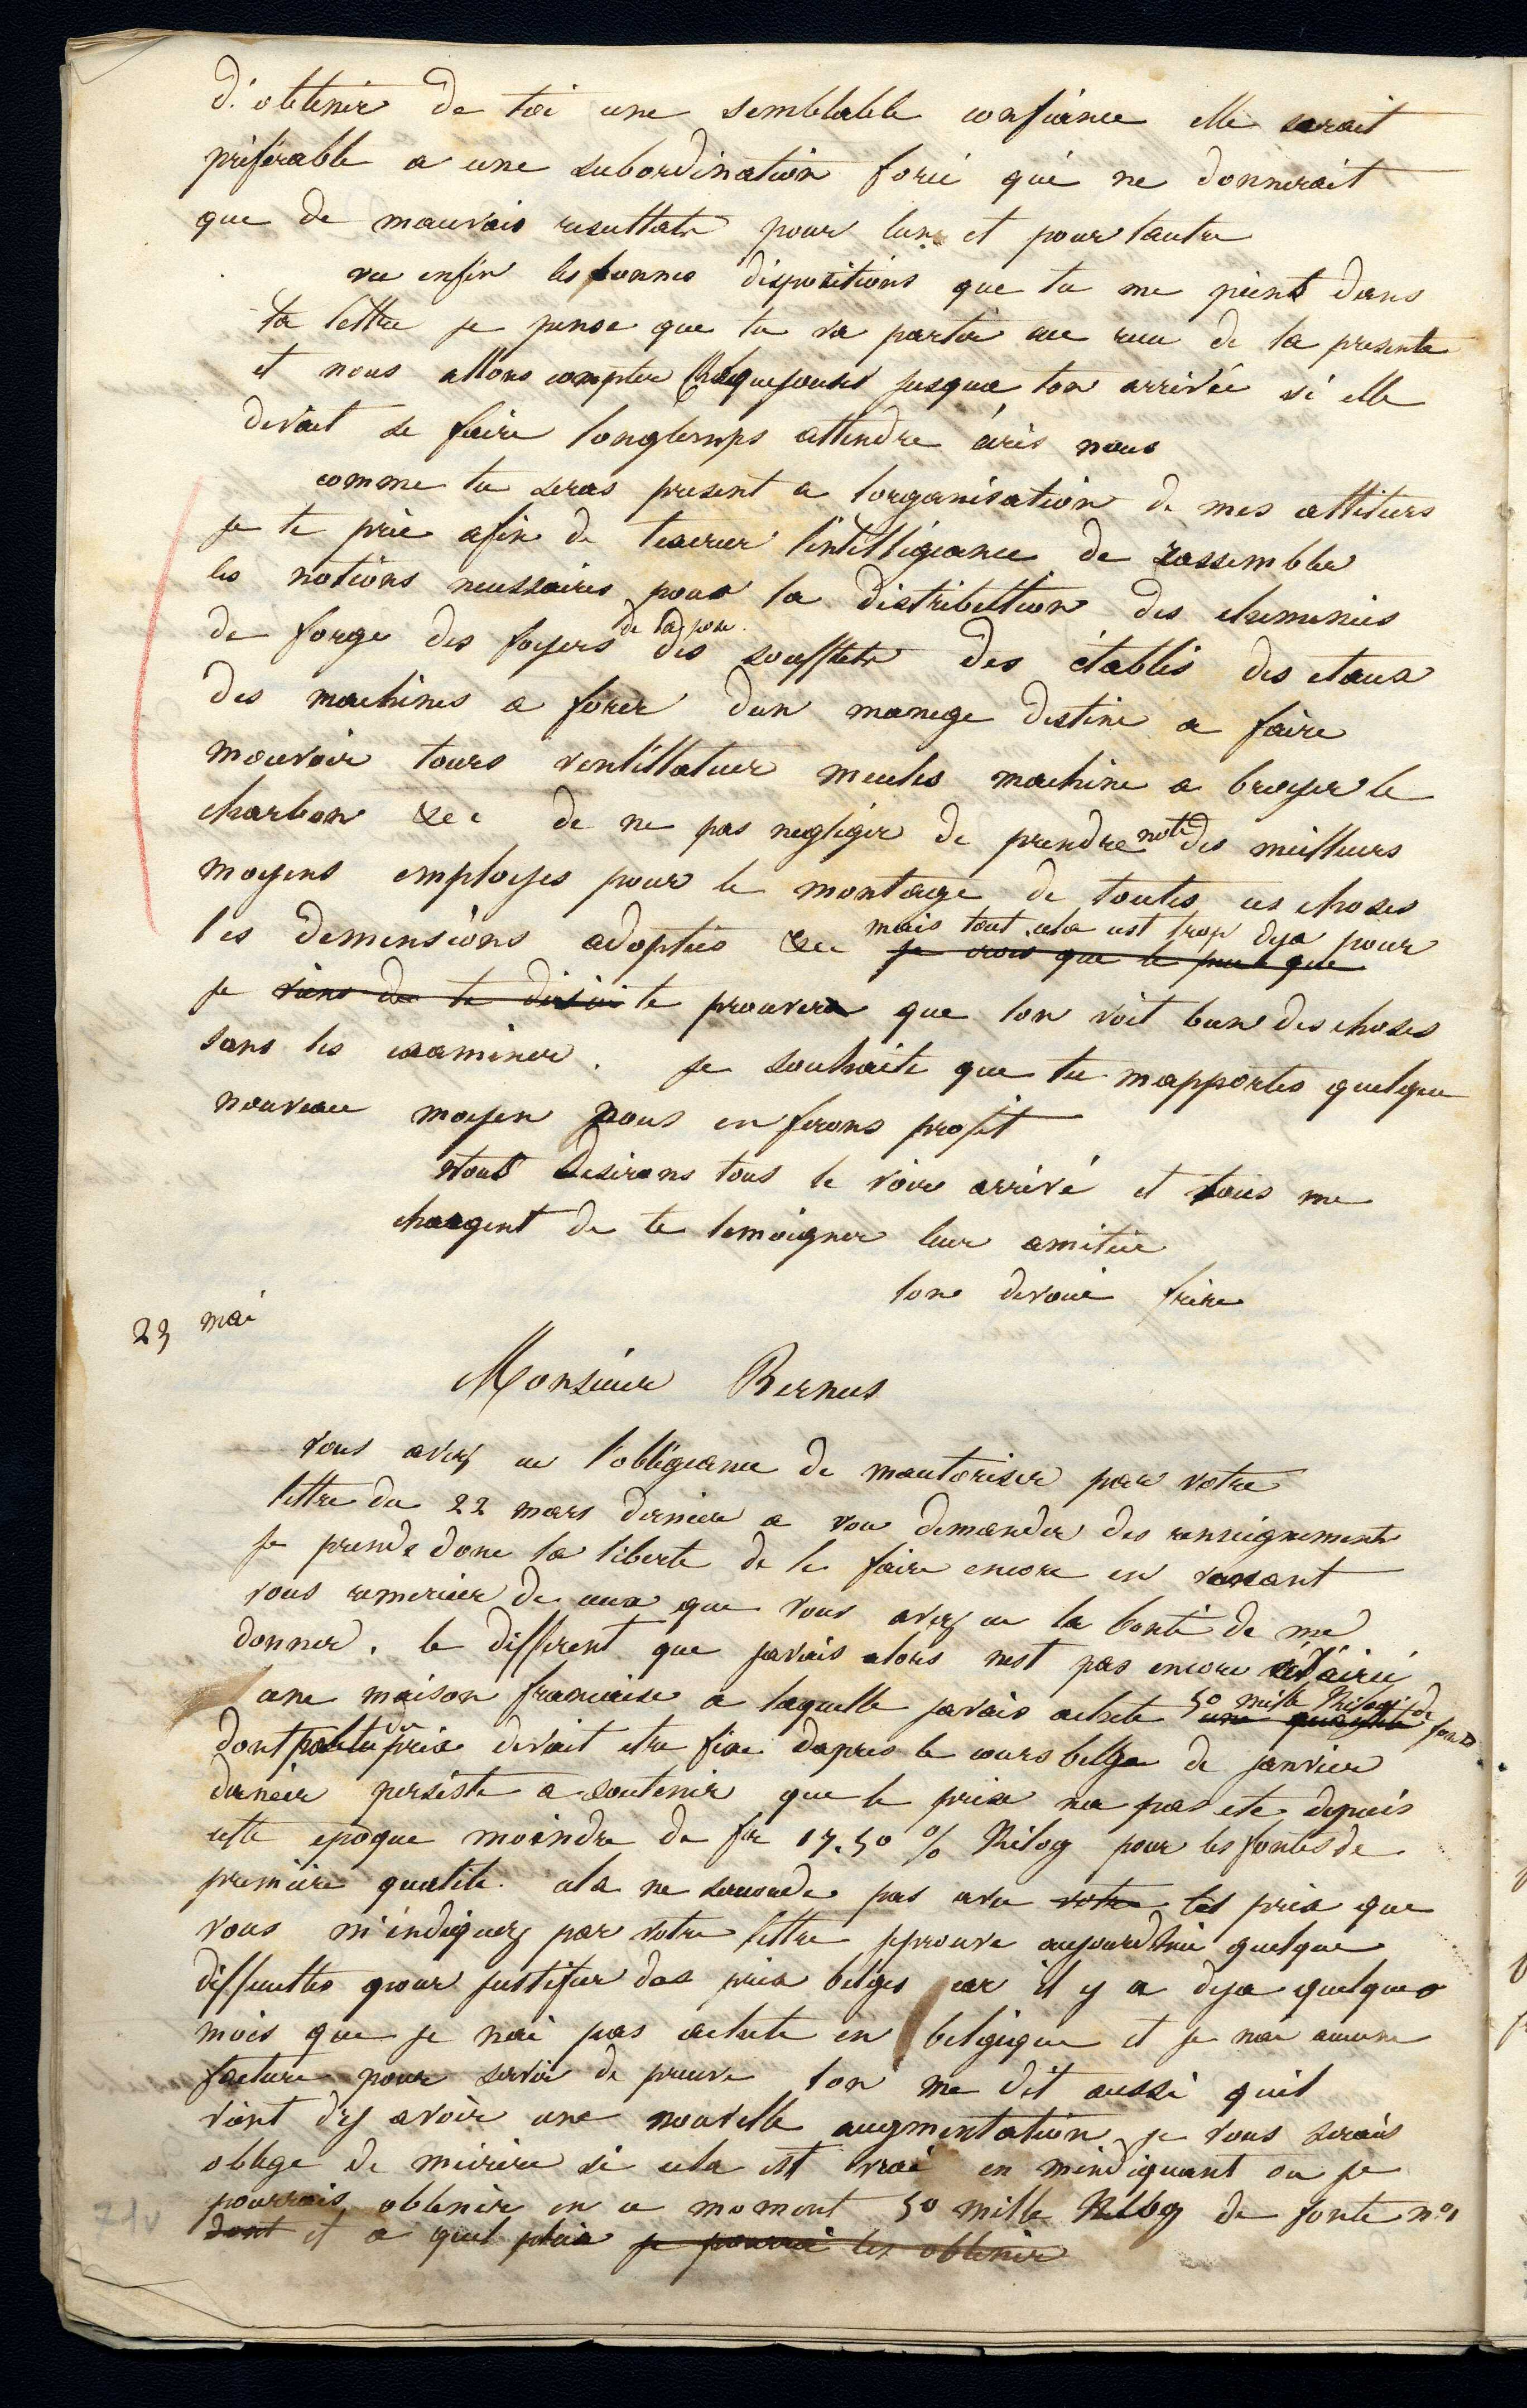 d'obtenir de toi une semblable confiance elle serait
préférable a une subordination forcé qui ne donnerait
que de mauvais resultats pour lun et pour lautre
vu enfin les bonnes dispositions que tu me peint dans
ta lettre je pense que tu va partir au recu de la presente
et nous allons compter chaque jours jusqua ton arrivée si elle
devait se faire longtemps attendre écris nous
comme tu seras present a lorganisation de mes attiliers
je te prie afin de texercer lintelligeance de rassembler
les notions neussaires pour la distribution des cheminées
de forge des foyers des soufflets des établis des etaux
des machines a forer dun manege destiné a faire
mouvoir tours ventillateur meules machine a broyer le
charbon &c de ne pas negliger de prendre note des meilleurs
moyens employes pour le montage de toutes ces choses
les demensions adoptées &c je crois que le peu que mais tout cela est trop deja pour
je viens de te dire ici te prouvera que lon voit bien des choses
sans les examiner. je souhaite que tu mapportes quelque
nouveau moyen nous en ferons profit
Nous desirons tous te voir arrivé et tous me
chargent de te temoigner leur amitié
ton devoué frère
23 mai
Monsieur Bernus
vous avez eu l'obligeance de mautoriser par votre
lettre du 22 mars dernier a vou demander des renseignements
je prends donc la liberte de le faire encore en venant
vous remercier de ceux que vous avez eu la bonté de me
donner. le different que javais alors nest pas encore éclairci
une maison francaise a laquelle javais acheté une quantité 50 mille Kilog de fonte
dont le prix devait etre fixé dapres le cours belge de janvier
dernier persiste a soutenir que le prix na pas ete depuis
cette epoque moindre de fr 17.50 % Kilog pour les fontes de
premiere qualité. cela ne saccorde pas avec votre les prix que
vous m'indiquez par votre lettre jeprouve aujourdhui quelque
difficultés pour justifier des prix belges car il y a deja quelques
mois que je nai pas acheté en belgique et je nai aucune
facture pour servir de preuve lon me dit aussi quil
vient dy avoir une nouvelle augmentation je vous serais
obligé de mécrire si cela est vrai en mindiquant ou je
pourrais obtenir en ce moment 50 mille Kilog de fonte n° 1
dont et a quel prix je pourrai les obtenir